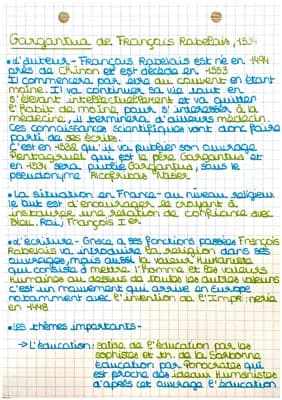 Gargantua de François Rabelais, 1534
• L'auteur - François Rabelais est né en 1494
près de Chinon et est décédé en 1553
Il commencera par être au couvent en étant
moine. Il va continuer sa vie tout en
s'élevant intellectuellement et va quitter
l'habit de moine, pour s'intéresser à la
médecine, il terminera d'ailleurs médecin.
Ces connaissances scientifiques vont donc faire
partie de ses écrits.
C'est en 1532 qu'il va publier son ouvrage
Pentragruel qui est le père Gargantua et
en 1534 sera publié Gargantua, sous le
pseudonyme Alcofribas Nasier.
• La situation en France - au niveau religieux
le but est d'encourager le croyant à
instaurer une relation de confiance avec
Dieu. Roi; François Ier
• L'écriture - Grâce à ses fonctions passées François
Rabelais va introduire la religion dans ses
ouvrages, mais aussi la valeur Humaniste
qui consiste à mettre l'Homme et les valeurs
Humaines au dessus de toutes les autres valeurs
c'est un mouvement qui arrive en Europe
notamment avec l'invention de l'Imprimerie
en 1448
• Les thèmes importants -
→ L'éducation: satire de l'éducation par les
sophistes et th. de la Sorbonne
éducation par Ponocrates qui
est proche des idéaux Humanistes
d'après cet ouvrage l'éducation